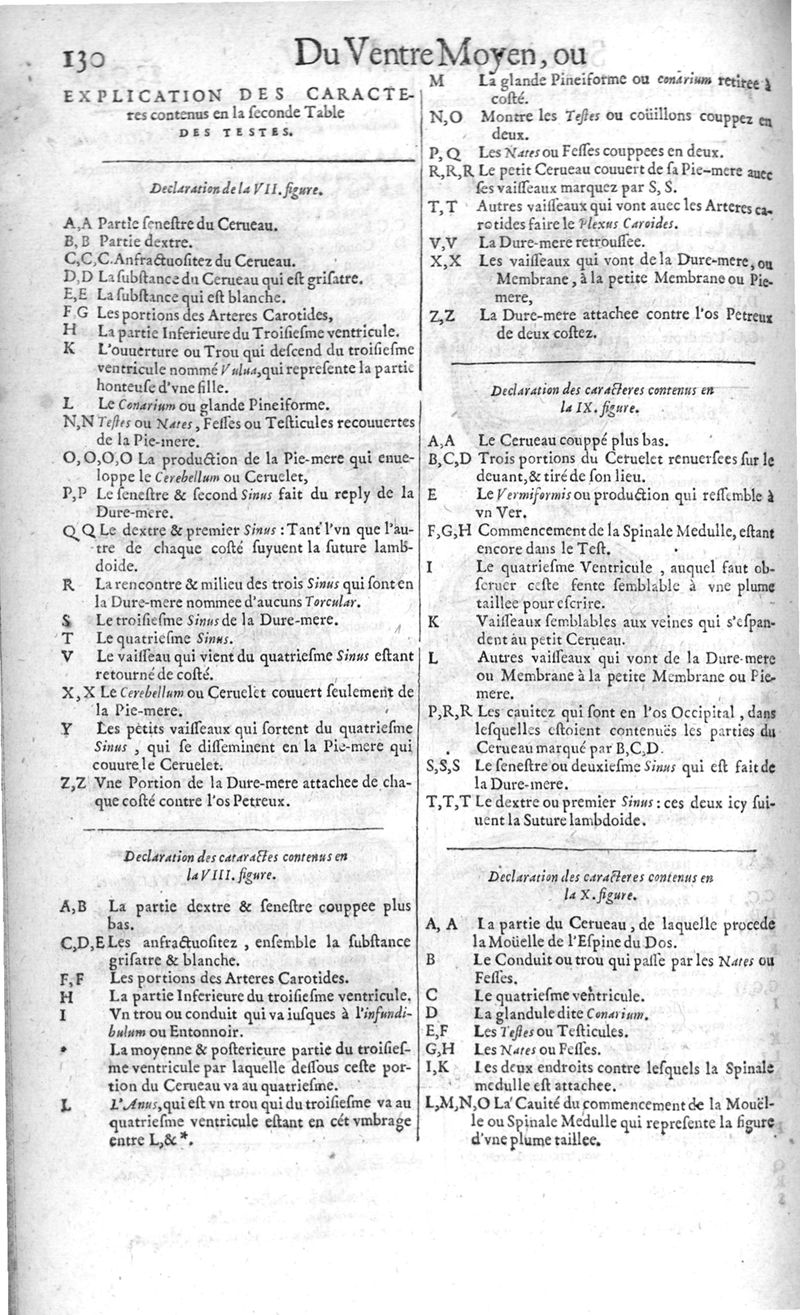 130
Du Ventre Moyen, ou
EXPLICATION DES CARACTE-
res contenus en la ſeconde Table
DES TESTES.
Declaration de la VII. figure.
A,A Partie ſeneſtre du Cerueau.
B,B Partie dextre.
C,C,C. Anfractuoſitez du Cerueau.
D,D La ſubſtance du Cerueau qui eſt griſatre.
E,E La ſubſtance qui eſt blanche.
F,G Les portions des Arteres Carotides,
H La partie Inferieure du Troiſieſme ventricule.
K L'ouuerture ou Trou qui deſcend du troiſieſme
ventricule nommé Vulua, qui repreſente la partie
honteuſe d'vne fille.
L Le Conarium ou glande Pineiforme.
N,N Teſtes ou Nates, Feſſes ou Teſticules recouuertes
de la Pie-mere.
O,O,O,O La production de la Pie-mere qui enue-
loppe le Cerebellum ou Ceruelet,
P,P Le ſeneſtre & ſecond Sinus fait du reply de la
Dure-mere.
Q,Q Le dextre & premier Sinus : Tant l'vn que l'au-
tre de chaque coſté ſuyuent la ſuture lamb-
doide.
R La rencontre & milieu des trois Sinus qui ſont en
la Dure-mere nommee d'aucuns Torcular.
S Le troiſieſme Sinus de la Dure-mere.
T Le quatrieſme Sinus.
V Le vaiſſeau qui vient du quatrieſme Sinus eſtant
retourné de coſté.
X,X Le Cerebellum ou Ceruelet couuert ſeulement de
la Pie-mere.
Y Les petits vaiſſeaux qui ſortent du quatrieſme
Sinus, qui ſe diſſeminent en la Pie-mere qui
couure le Ceruelet.
Z,Z Vne Portion de la Dure-mere attachee de cha-
que coſté contre l'os Petreux.
Declaration des cataractes contenus en
la VIII. figure.
A,B La partie dextre & ſeneſtre couppee plus
bas.
C,D,E Les anfractuoſitez, enſemble la ſubſtance
griſatre & blanche.
F,F Les portions des Arteres Carotides.
H La partie Inferieure du troiſieſme ventricule.
I Vn trou ou conduit qui va iuſques à l'infundi-
bulum ou Entonnoir.
* La moyenne & poſterieure partie du troiſieſ-
me ventricule par laquelle deſſous ceſte por-
tion du Cerueau va au quatrieſme.
L L'Anus, qui eſt vn trou qui du troiſieſme va au
quatrieſme ventricule eſtant en cét vmbrage
entre L,& *.
M La glande Pineiforme ou conarium retiree à
coſté.
N,O Montre les Teſtes ou coüillons couppez en
deux.
P,Q Les Nates ou Feſſes couppees en deux.
R,R,R Le petit Cerueau couuert de ſa Pie-mere auec
ſes vaiſſeaux marquez par S, S.
T,T Autres vaiſſeaux qui vont auec les Arteres ca-
rotides faire le Plexus Caroides.
V,V La Dure-mere retrouſſee.
X,X Les vaiſſeaux qui vont de la Dure-mere, ou
Membrane, à la petite Membrane ou Pie-
mere,
Z,Z La Dure-mere attachee contre l'os Petreux
de deux coſtez.
Declaration des caracteres contenus en
la IX. figure.
A,A Le Cerueau couppé plus bas.
B,C,D Trois portions du Ceruelet renuerſees ſur le
deuant, & tiré de ſon lieu.
E Le Vermiformis ou production qui reſſemble à
vn Ver.
F,G,H Commencement de la Spinale Medulle, eſtant
encore dans le Teſt.
I Le quatrieſme Ventricule, auquel faut ob-
ſeruer ceſte fente ſemblable à vne plume
taillee pour eſcrire.
K Vaiſſeaux ſemblables aux veines qui s'eſpan-
dent au petit Cerueau.
L Autres vaiſſeaux qui vont de la Dure-mere
ou Membrane à la petite Membrane ou Pie-
mere.
P,R,R Les cauitez qui ſont en l'os Occipital, dans
leſquelles eſtoient contenuës les parties du
Cerueau marqué par B,C,D.
S,S,S Le ſeneſtre ou deuxieſme Sinus qui eſt fait de
la Dure-mere.
T,T,T Le dextre ou premier Sinus : ces deux icy ſui-
uent la Suture lambdoide.
Declaration des caracteres contenus en
la X. figure.
A, A La partie du Cerueau, de laquelle procede
la Moüelle de l'Eſpine du Dos.
B Le Conduit ou trou qui paſſe par les Nates ou
Feſſes.
C Le quatrieſme ventricule.
D La glandule dite Conarium.
E,F Les Teſtes ou Teſticules.
G,H Les Nates ou Feſſes.
I,K Les deux endroits contre leſquels la Spinale
medulle eſt attachee.
L,M,N,O La Cauité du commencement de la Mouël-
le ou Spinale Medulle qui repreſente la figure
d'vne plume taillee.